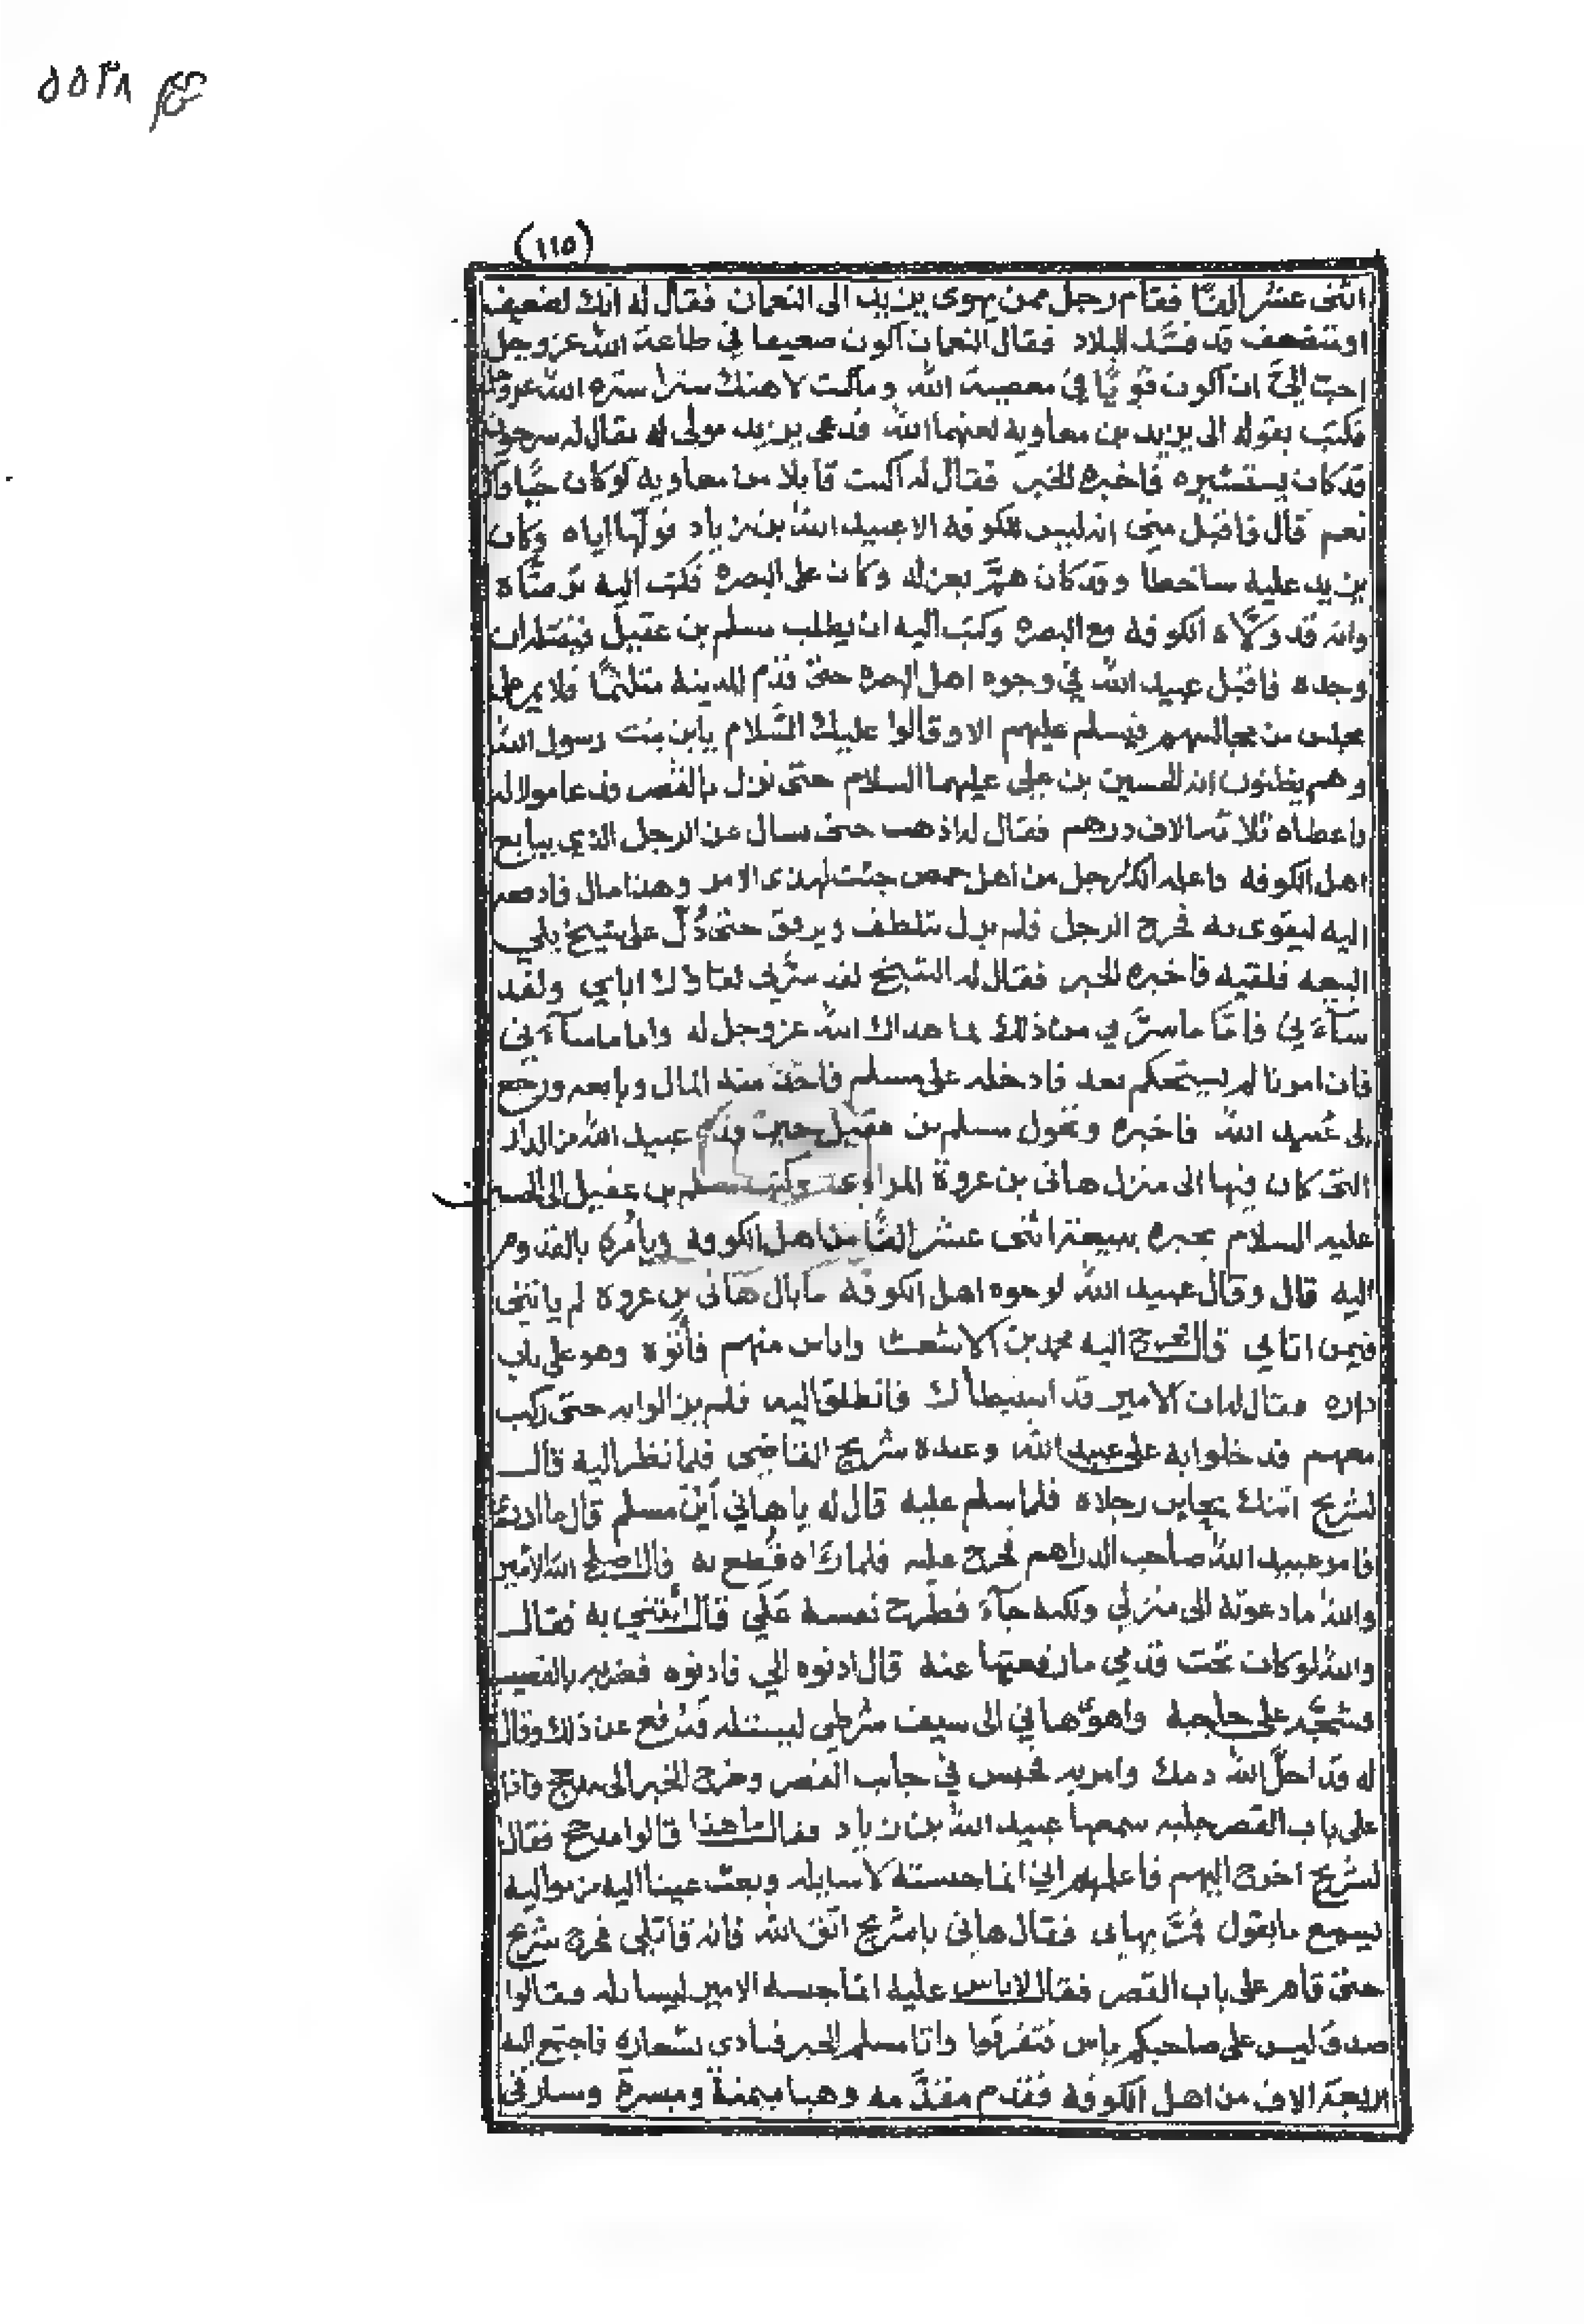 ٥٥٣٨
(١١٥)
اثنى عشر الفًا فقام رجل ممن يهوى يزيد الى النعمان فقال له انك لضعيف
او متضعف قد فسد البلاد فقال النعمان اكون ضعيفا في طاعة الله عز وجل
احبّ اليّ ان اكون قويًّا في معصية الله وماكنت لاهتك سترا ستره الله عز وجل
فكتب بقوله الى يزيد بن معاوية لعنهما الله فدعى يزيد مولى له يقال له سرجون
قد كان يستشيره فاخبره الخبر فقال له اكنت قابلا من معاوية لو كان حيًّا قال
نعم قال فاقبل منى انه ليس للكوفة الا عبيد الله بن زياد فولّها اياه وكان
يزيد عليه ساخطا وقد كان همَّ بعزله وكان على البصره فكتب اليه برضاه
وانه قد ولّاه الكوفة مع البصره وكتب اليه ان يطلب مسلم بن عقيل فيقتله ان
وجده فاقبل عبيد الله في وجوه اهل البصرة حتى قدم المدينة متلثمًا فلا يمر على
مجلس من مجالسهم فيسلم عليهم الا وقالوا عليك السَّلام يا بن بنت رسول الله
وهم يظنون انه الحسين بن علي عليهما السلام حتى نزل بالقصر فدعا مولا له
فاعطاه ثلاثة الاف درهم فقال له اذهب حتى تسال عن الرجل الذي يبايع
اهل الكوفة واعلمه انك رجل من اهل حمص جئت لهذى الامر وهذا مال فادفعه
اليه ليتقوى به فخرج الرجل فلم يزل يتلطف ويرفق حتى دُلّ على شيخ يلي
البيعه فلقيه فاخبره الخبر فقال له الشيخ لقد سرّنى لقاؤك اياي ولقد
سآءَنِي فامّا ما سرّني من ذلك بما هداك الله عز وجل له واما ما سآءنى
فان امرنا لم يستحكم بعد فادخله على مسلم فاخذ منه المال وبايعه ورجع
الى عُبيد الله فاخبره وتحول مسلم بن عقيل حين قدم عبيد الله من الدار
التى كان فيها الى منزل هانى بن عروة المرادى وكتب مسلم بن عقيل الى الحسين
عليه السلام يخبره ببيعة اثنى عشر الفًا من اهل الكوفة ويأمره بالقدوم
اليه قال وقال عبيد الله لوجوه اهل الكوفة ما بال هانى بن عروة لم ياتنى
فيمن اتاني قال فخرج اليه محمد بن الاشعث واناس منهم فأتوه وهو على باب
داره فقال له ان الامير قد استبطأك فانطلق اليه فلم يزالوا به حتى ركب
معهم فدخلوا به على عبيد الله وعنده شريح القاضى فلما نظر اليه قال
لشريح اتتك بحاين رجلاه فلما سلم عليه قال له يا هاني أين مسلم قال ما ادرى
فامر عبيد الله صاحب الدراهم فخرج عليه فلما رآه قُطع به قال اصلح الله الامير
والله ما دعوته الى منزلي ولكنه جآء فطرح نفسه عَلَي قال ائتني به فقال
والله لو كان تحت قدمي ما رفعتها عنه قال ادنوه الي فادنوه فضربه بالقضيب
فشجّه على حاجبه واهوى هاني الى سيف شرطي ليستله فدُفع عن ذلك وقال
له قد احلّ الله دمك وامر به فحبس في جانب القصر وخرج الخبر الى مذحج فاذا
على باب القصر جلبه سمعها عبيد الله بن زياد فقال ما هذا قالوا مذحج فقال
لشريح اخرج اليهم فاعلمهم اني انما حبسته لاسايله وبعث عينا اليه من مواليه
يسمع ما يقول فمرّ بهانى فقال هانى يا شريح اتق الله فانه قاتلي فخرج شريح
حتى قام على باب القصر فقال لا باس عليه انما حبسه الامير ليسائله فقالوا
صدق ليس على صاحبكم باس فتفرقوا واتا مسلم الخبر فنادى بشعاره فاجتمع اليه
اربعة الاف من اهل الكوفة فقدم مقدّمه وهيا ميمنة وميسرة وسار فى